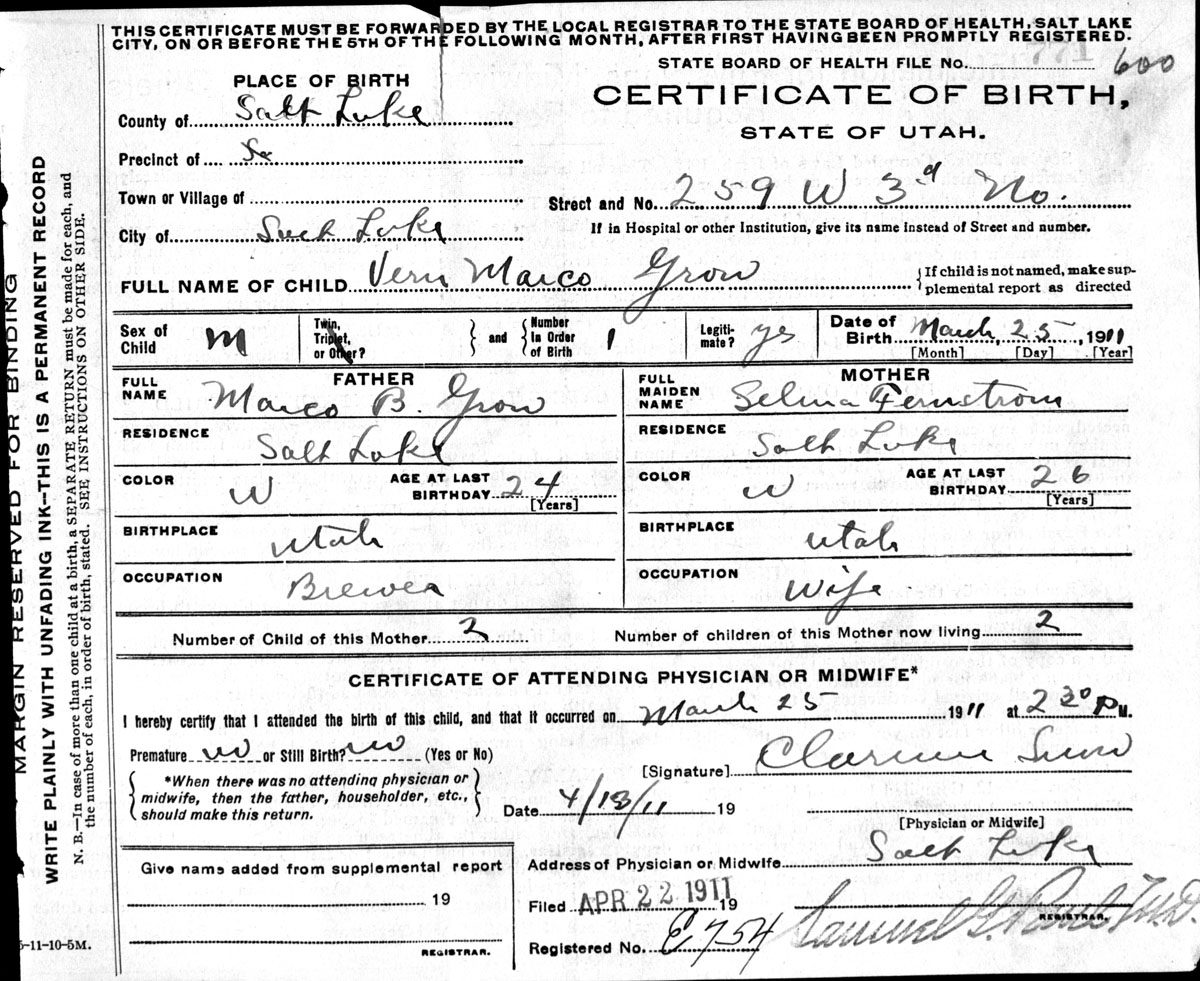 THIS CERTIFICATE MUST BE FORWARDED BY THE LOCAL REGISTRAR TO THE STATE BOARD OF HEALTH, SALT LAKE
CITY, ON OR BEFORE THE 5TH OF THE FOLLOWING MONTH, AFTER FIRST HAVING BEEN PROMPTLY REGISTERED.
STATE BOARD OF HEALTH FILE No. 771 600
PLACE OF BIRTH
CERTIFICATE OF BIRTH,
STATE OF UTAH.
County of Salt Lake
Precinct of
Town or Village of
Street and No. 259 W 3d No.
City of Salt Lake
If in Hospital or other Institution, give its name instead of Street and number.
FULL NAME OF CHILD Vern Marco Grow
If child is not named, make sup-
plemental report as directed
Sex of Child M
Twin, Triplet, or Other? and Number in Order of Birth 1
Legiti-mate? yes
Date of Birth March, 25 1911
[Month] [Day] [Year]
FATHER
FULL NAME Marco B. Grow
RESIDENCE Salt Lake
COLOR W AGE AT LAST BIRTHDAY 24
[Years]
BIRTHPLACE Utah
OCCUPATION Brewer
MOTHER
FULL MAIDEN NAME Selma Fernstrom
RESIDENCE Salt Lake
COLOR W AGE AT LAST BIRTHDAY 26
[Years]
BIRTHPLACE Utah
OCCUPATION Wife
Number of Child of this Mother 2 Number of children of this Mother now living 2
CERTIFICATE OF ATTENDING PHYSICIAN OR MIDWIFE*
I hereby certify that I attended the birth of this child, and that it occurred on March 25 1911 at 230 P.M.
Premature no or Still Birth? no (Yes or No)
[Signature]
*When there was no attending physician or
midwife, then the father, householder, etc.,
should make this return.
Date 4/18/11 19
[Physician or Midwife]
Address of Physician or Midwife Salt Lake
Give name added from supplemental report
19
REGISTRAR.
Filed APR 22 1911 19
Registered No. E754
Samuel G. Paul M.D.
REGISTRAR.
5-11-10-5M.
MARGIN RESERVED FOR BINDING
WRITE PLAINLY WITH UNFADING INK—THIS IS A PERMANENT RECORD
N. B.—In case of more than one child at a birth, a SEPARATE RETURN must be made for each, and
the number of each, in order of birth, stated. SEE INSTRUCTIONS ON OTHER SIDE.